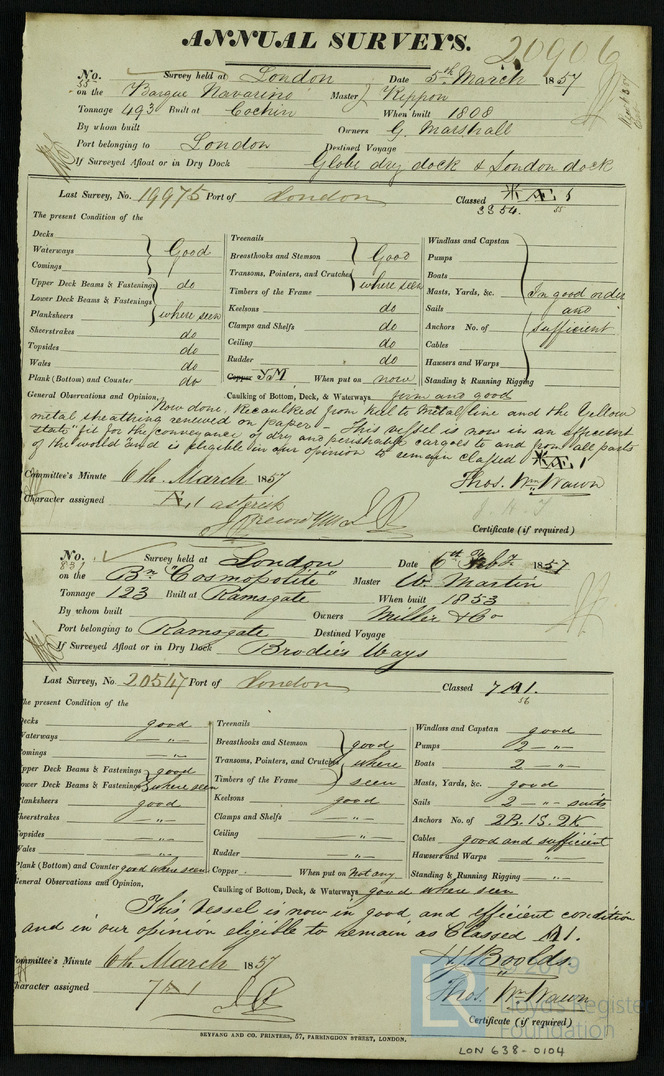 ANNUAL SURVEYS. 20906
No. 55 Survey held at London Date 5th March 1857
on the Barque Navarino Master Rippon
Tonnage 493 Built at Cochin When built 1808
By whom built Owners G. Marshall
Port belonging to London Destined Voyage
If Surveyed Afloat or in Dry Dock Globe dry dock & London dock
Last Survey, No. 19975 Port of London Classed Æ 1
3854. 55
The present Condition of the
Decks
Waterways Good
Comings
Upper Deck Beams & Fastenings do
Lower Deck Beams & Fastenings
Planksheers where seen
Sheerstrakes do
Topsides do
Wales do
Plank (Bottom) and Counter do
Treenails
Breasthooks and Stemson Good
Transoms, Pointers, and Crutches where seen
Timbers of the Frame
Keelsons do
Clamps and Shelfs do
Ceiling do
Rudder do
Copper YM When put on now
Caulking of Bottom, Deck, & Waterways firm and good
Windlass and Capstan
Pumps
Boats
Masts, Yards, &c. In good order
Sails and
Anchors No. of sufficient
Cables
Hawsers and Warps
Standing & Running Rigging
General Observations and Opinion, Now done, Recaulked from keel to metal line and the Yellow
metal sheathing renewed on paper - This vessel is now in an efficient
state fit for the conveyance of dry and perishable cargoes to and from all parts
of the world and is eligible in our opinion to remain classed Æ 1
Committee's Minute 6th March 1857 Thos. Wm Wawn
Character assigned Æ 1 asterisk
Certificate (if required)
No. 831 Survey held at London Date 6th Feby. 1857
on the Bn "Cosmopolite" Master W. Martin
Tonnage 123 Built at Ramsgate When built 1853
By whom built Owners Miller & Co
Port belonging to Ramsgate Destined Voyage
If Surveyed Afloat or in Dry Dock Brodies Ways
Last Survey, No. 20547 Port of London Classed 7 A1.
56
The present Condition of the
Decks good
Waterways — " —
Comings — " —
Upper Deck Beams & Fastenings good
Lower Deck Beams & Fastenings where seen
Planksheers good
Sheerstrakes — " —
Topsides — " —
Wales — " —
Plank (Bottom) and Counter good where seen
Treenails
Breasthooks and Stemson good
Transoms, Pointers, and Crutches where
Timbers of the Frame seen
Keelsons good
Clamps and Shelfs — " —
Ceiling — " —
Rudder — " —
Copper When put on Not any
Caulking of Bottom, Deck, & Waterways good where seen
Windlass and Capstan good
Pumps 2 — " —
Boats 2 — " —
Masts, Yards, &c. good
Sails 2 — " — suits
Anchors No. of 2B. 1S. 2K
Cables good and sufficient
Hawsers and Warps — " —
Standing & Running Rigging — " —
General Observations and Opinion,
This Vessel is now in good and efficient condition
and in our opinion eligible to remain as Classed A1.
Committee's Minute 6th March 1857 H. J. Boolds.
Character assigned 7 A 1 Thos. Wm Wawn
Certificate (if required)
SEYFANG AND CO. PRINTERS, 57, FARRINGDON STREET, LONDON.
LON 638-0104
LR © 2019
Lloyd's Register
Foundation